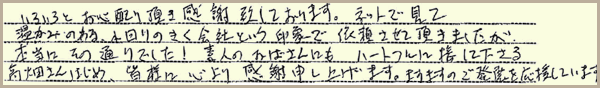 いろいろとお心配り頂き感謝致しております。ネットで見て
温かみのある、小回りのきく会社という印象で依頼させて頂きましたが、
本当にその通りでした！素人のおばさんにも ハートフルに接して下さる
畑さんはじめ、皆様に心より感謝申し上げます。ますますのご発展を応援しています